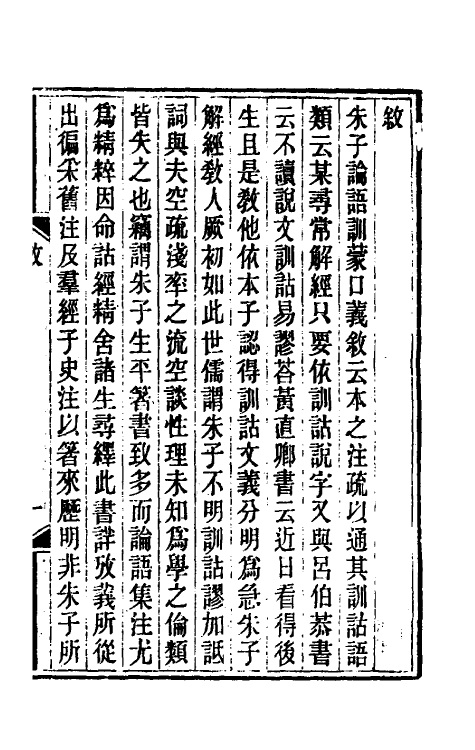 敘
朱子論語訓蒙口義敘云本之注疏以通其訓詁語
類云某尋常解經只要依訓詁說字又與呂伯恭書
云不讀說文訓詁易謬荅黃直卿書云近日看得後
生且是敎他依本子認得訓詁文義分明為急朱子
解經敎人厥初如此世儒謂朱子不明訓詁謬加詆
詞與夫空疏淺率之流空談性理未知為學之倫類
皆失之也竊謂朱子生平箸書致多而論語集注尤
為精粹因命詁經精舍諸生尋繹此書詳攷義所從
出徧采舊注及羣經子史注以箸來歷明非朱子所
敘
一